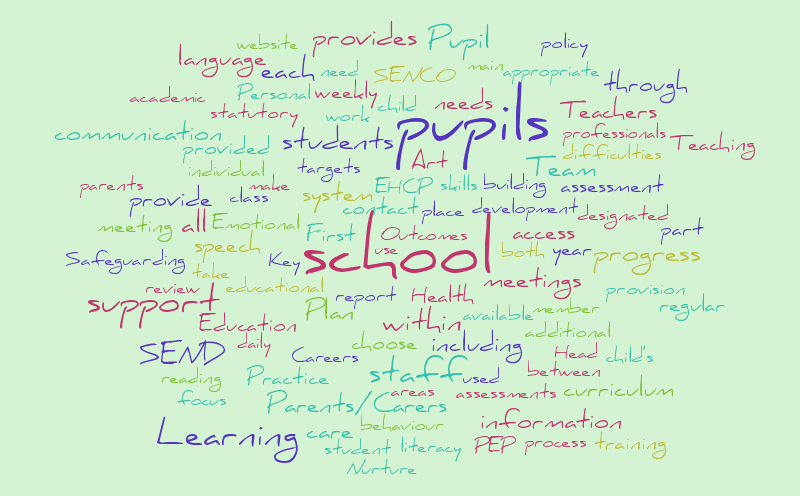 website provides Pupil policy
language each need SENCO main appropriate through
academic Personal weekly child needs pupils Teachers
statutory work
communication provided students professionals Teaching
individual targets Art Team difficulties
parents make EHCP skills building assessment
provide class system contact place development designated
meeting all Emotional First Outcomes access part
Safeguarding speech Key school use both year progress
take
review educational report Health meetings provision
support Plan available member regular
Education within additional
SEND daily Careers choose including Head child's
reading Practice staff used between
focus Parents/Carers areas assessments curriculum
Learning care behaviour information
student literacy PEP process training
Nurture